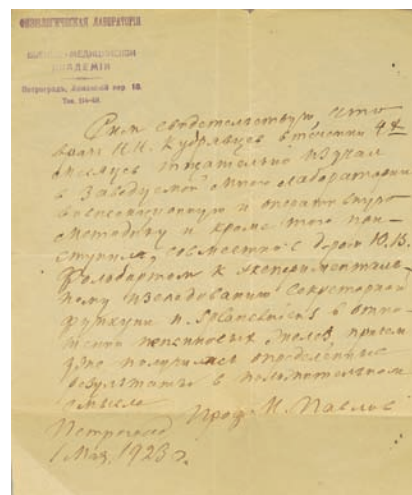 ФИЗІОЛОГИЧЕСКАЯ ЛАБОРАТОРІЯ
ВОЕННО-МЕДИЦИНСКОЙ
АКАДЕМІИ
Петроградъ, Ломанскій пер
Тел.
Сим свидетельствую, что
врач Н.Н. Кудрявцев в течении
тщательно изучал
в заведуемой мною лаборатории
вивисекционную и оперативную
методику и кроме того при-
ступил, совместно с д-ром Ю.В.
Фольбортом к эксперименталь-
ному исследованию секреторной
функции n. Splanchnici в отно-
шении пепсиновых желез, причем
уже получились определенные
результаты в положительном
смысле.
Проф. И. Павлов
Петроград
1 Мая, 1923 г.